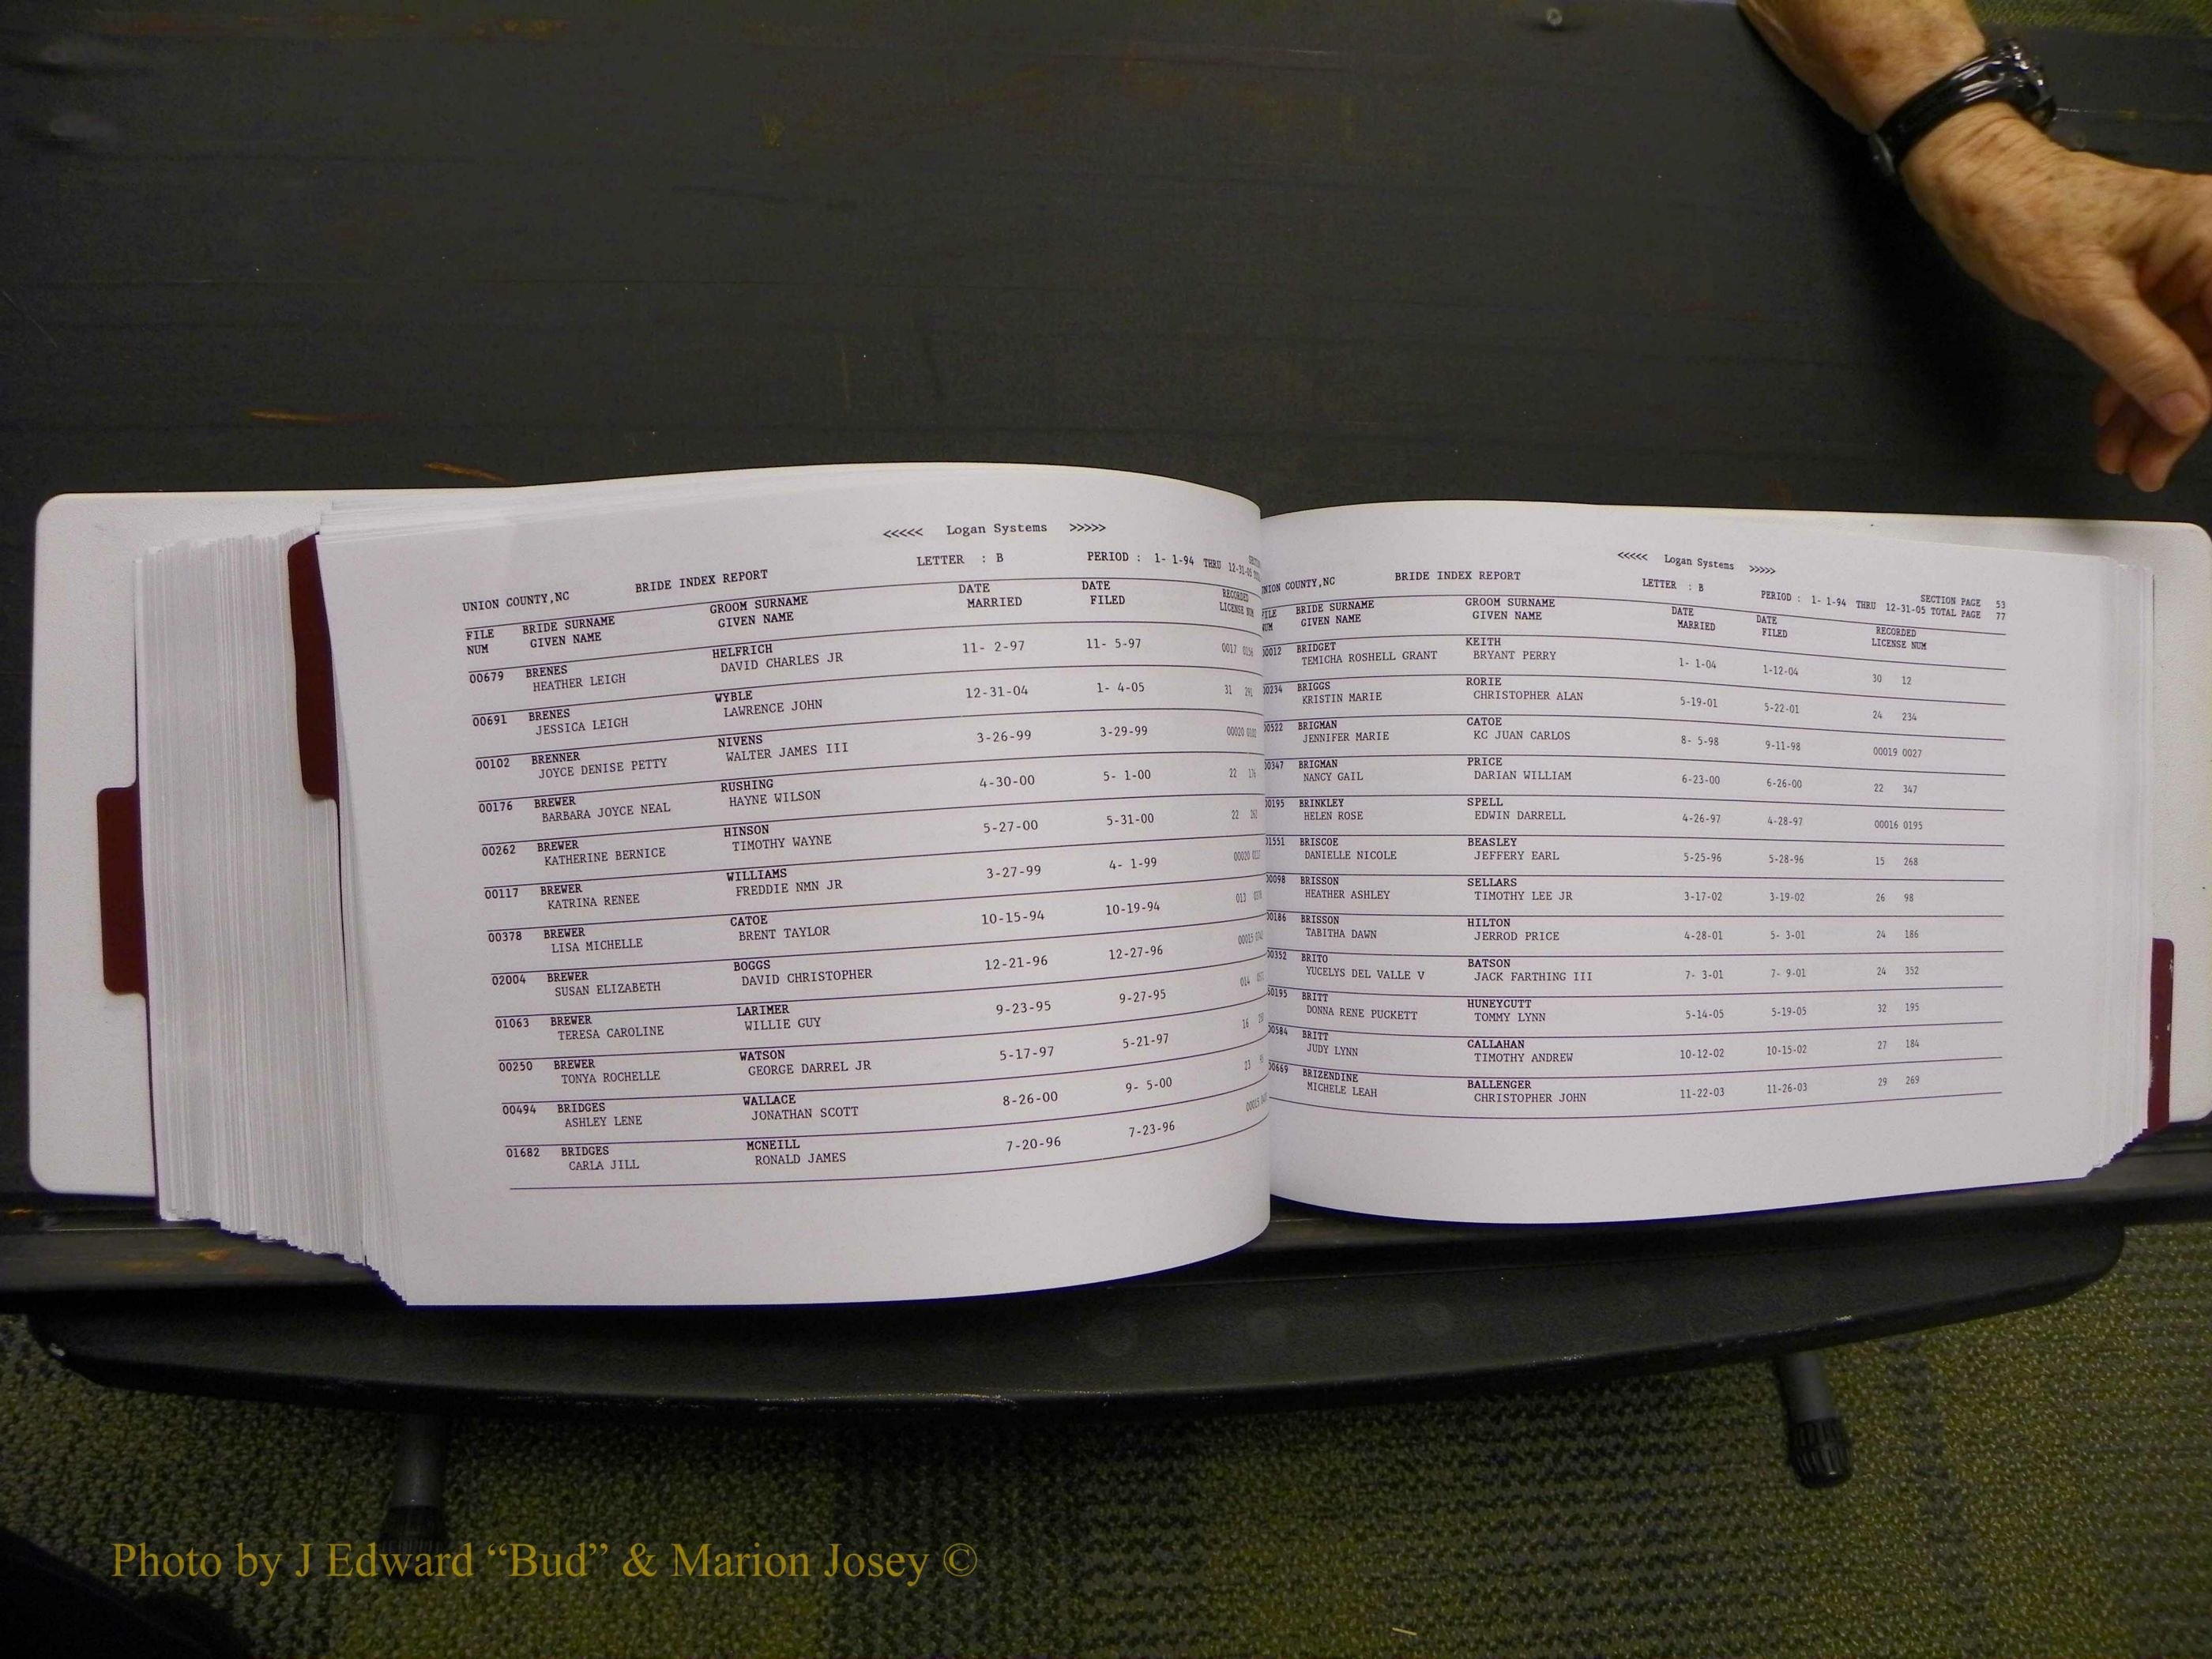 <<<<< Logan Systems >>>>>
UNION COUNTY,NC BRIDE INDEX REPORT LETTER : B PERIOD : 1- 1-94 THRU 12-31-05
FILE BRIDE SURNAME GROOM SURNAME DATE DATE RECORDED
NUM GIVEN NAME GIVEN NAME MARRIED FILED LICENSE NUM
00679 BRENES HELFRICH 11- 2-97 11- 5-97 0017
HEATHER LEIGH DAVID CHARLES JR
00691 BRENES WYBLE 12-31-04 1- 4-05 31
JESSICA LEIGH LAWRENCE JOHN
00102 BRENNER NIVENS 3-26-99 3-29-99 00020
JOYCE DENISE PETTY WALTER JAMES III
00176 BREWER RUSHING 4-30-00 5- 1-00 22
BARBARA JOYCE NEAL HAYNE WILSON
00262 BREWER HINSON 5-27-00 5-31-00 22
KATHERINE BERNICE TIMOTHY WAYNE
00117 BREWER WILLIAMS 3-27-99 4- 1-99 00020
KATRINA RENEE FREDDIE NMN JR
00378 BREWER CATOE 10-15-94 10-19-94 013
LISA MICHELLE BRENT TAYLOR
02004 BREWER BOGGS 12-21-96 12-27-96 00015
SUSAN ELIZABETH DAVID CHRISTOPHER
01063 BREWER LARIMER 9-23-95 9-27-95 014
TERESA CAROLINE WILLIE GUY
00250 BREWER WATSON 5-17-97 5-21-97 16
TONYA ROCHELLE GEORGE DARREL JR
00494 BRIDGES WALLACE 8-26-00 9- 5-00 23
ASHLEY LENE JONATHAN SCOTT
01682 BRIDGES MCNEILL 7-20-96 7-23-96 00015
CARLA JILL RONALD JAMES
<<<<< Logan Systems >>>>>
UNION COUNTY,NC BRIDE INDEX REPORT LETTER : B SECTION PAGE 53
PERIOD : 1- 1-94 THRU 12-31-05 TOTAL PAGE 77
FILE BRIDE SURNAME GROOM SURNAME DATE DATE RECORDED
NUM GIVEN NAME GIVEN NAME MARRIED FILED LICENSE NUM
00012 BRIDGET KEITH 1- 1-04 1-12-04 30 12
TEMICHA ROSHELL GRANT BRYANT PERRY
00234 BRIGGS RORIE 5-19-01 5-22-01 24 234
KRISTIN MARIE CHRISTOPHER ALAN
00522 BRIGMAN CATOE 8- 5-98 9-11-98 00019 0027
JENNIFER MARIE KC JUAN CARLOS
00347 BRIGMAN PRICE 6-23-00 6-26-00 22 347
NANCY GAIL DARIAN WILLIAM
00195 BRINKLEY SPELL 4-26-97 4-28-97 00016 0195
HELEN ROSE EDWIN DARRELL
01551 BRISCOE BEASLEY 5-25-96 5-28-96 15 268
DANIELLE NICOLE JEFFERY EARL
00098 BRISSON SELLARS 3-17-02 3-19-02 26 98
HEATHER ASHLEY TIMOTHY LEE JR
00186 BRISSON HILTON 4-28-01 5- 3-01 24 186
TABITHA DAWN JERROD PRICE
00352 BRITO BATSON 7- 3-01 7- 9-01 24 352
YUCELYS DEL VALLE V JACK FARTHING III
00195 BRITT HUNEYCUTT 5-14-05 5-19-05 32 195
DONNA RENE PUCKETT TOMMY LYNN
00584 BRITT CALLAHAN 10-12-02 10-15-02 27 184
JUDY LYNN TIMOTHY ANDREW
00669 BRIZENDINE BALLENGER 11-22-03 11-26-03 29 269
MICHELE LEAH CHRISTOPHER JOHN
Photo by J Edward “Bud” & Marion Josey ©